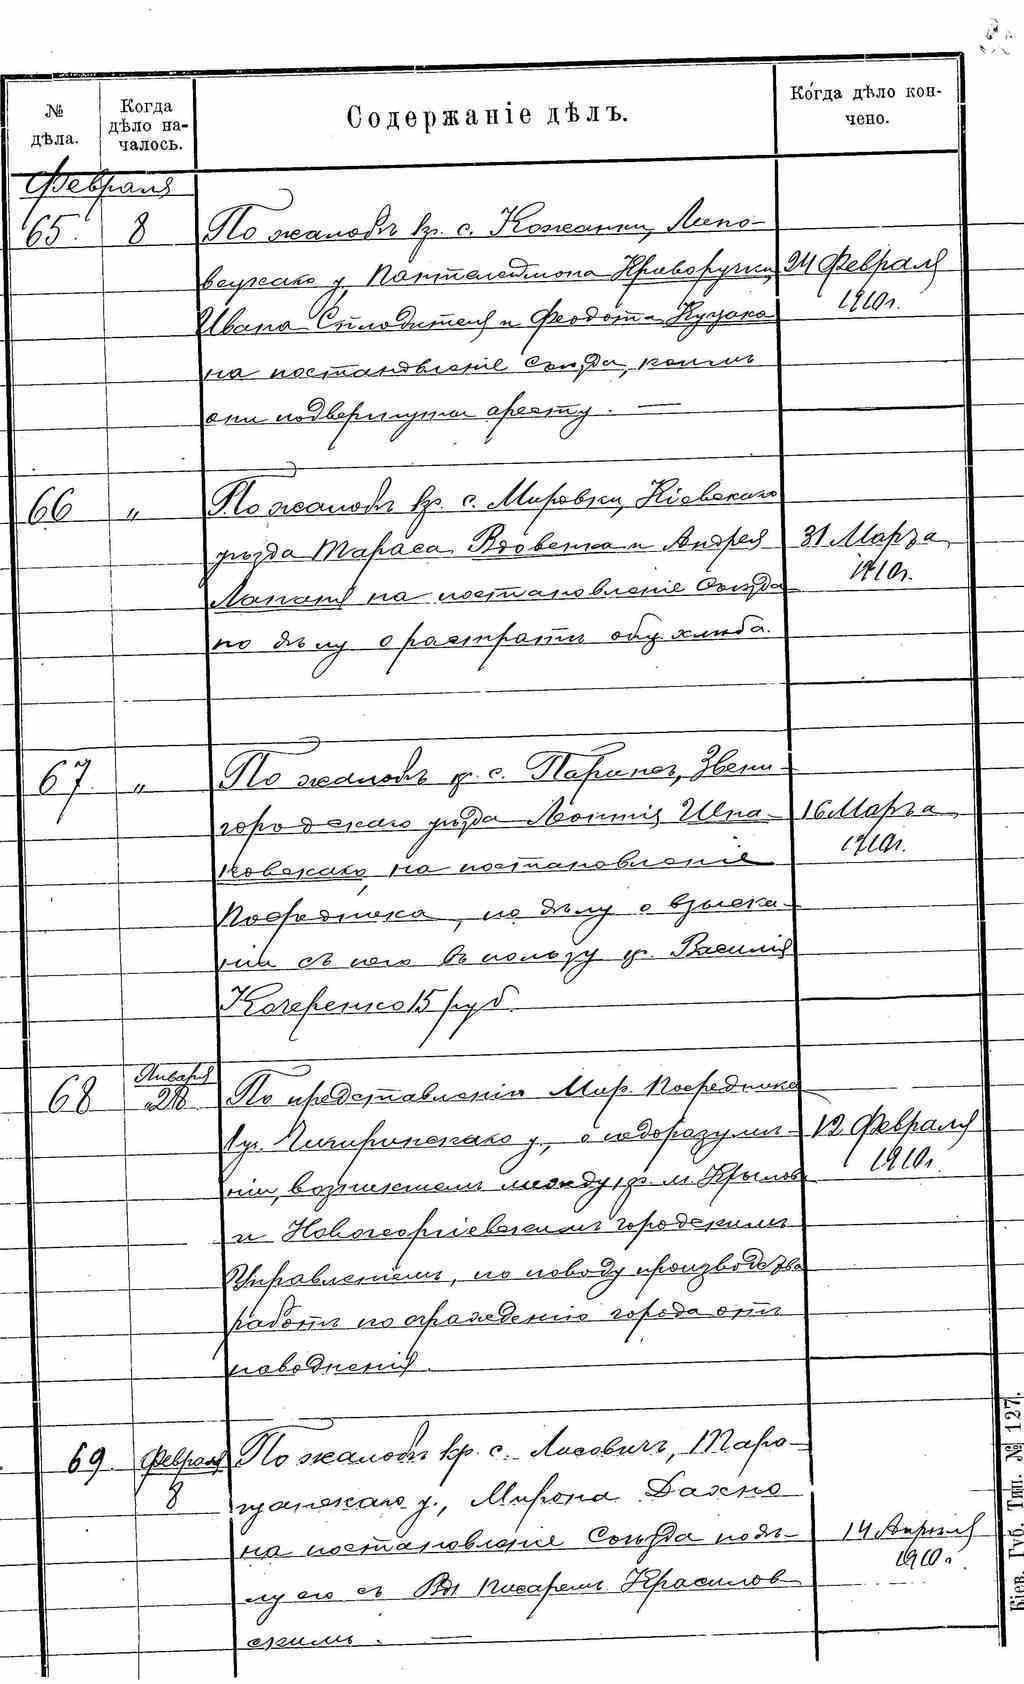 № дѣла.
Когда дѣло на-
чалось.
Содержаніе дѣлъ.
Когда дѣло кон-
чено.
Февраля
65. 8
По жалобѣ кр. с. Кожанки, Липо-
вецкаго у. Пантелеймона Криворучки,
Ивана Сплодителя и Феодота Куцака
на постановленіе Съѣзда, коимъ
они подвергнуты аресту. —
24 Февраля
1910 г.
66 „
По жалобѣ кр. с. Мировки, Кіевскаго
уѣзда Тараса Вдовенка и Андрея
Лапатя на постановленіе Съѣзда
по дѣлу о растратѣ общ. хлѣба.
31 Марта
1910 г.
67. „
По жалобѣ кр. с. Звени-
городскаго уѣзда Леонтія Шпа-
ковскаго, на постановленіе
Посредника, по дѣлу о взыска-
ніи съ него въ пользу кр. Василія
Кочеренко 15 руб.
16 Марта
1910 г.
68
Января
28
По представленію Мир. Посредника
1 уч. Чигиринскаго у., о недоразумѣ-
ніи, возникшемъ между кр. м. Крылова
и Новогеоргіевскимъ городскимъ
Управленіемъ, по поводу производства
работъ по огражденію города отъ
наводненія.
12 Февраля
1910 г.
69.
Февраля
8
По жалобѣ кр. с. Лисовичъ, Тара-
щанскаго у., Мирона Дахно
на постановленіе Съѣзда по дѣ-
лу его съ Вол. писаремъ Красилов-
скимъ. —
14 Апрѣля
1910 г.
Кіев. Губ. Тип. № 127.